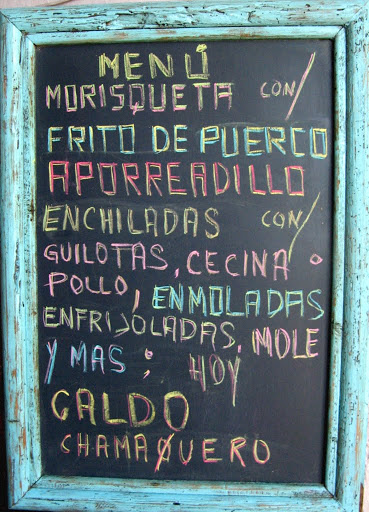 MENÚ
MORISQUETA CON/
FRITO DE PUERCO
APORREADILLO
ENCHILADAS CON/
GUILOTAS, CECINA °
POLLO, ENMOLADAS
ENFRIJOLADAS, MOLE
Y MAS ; HOY
CALDO
CHAMAQUERO